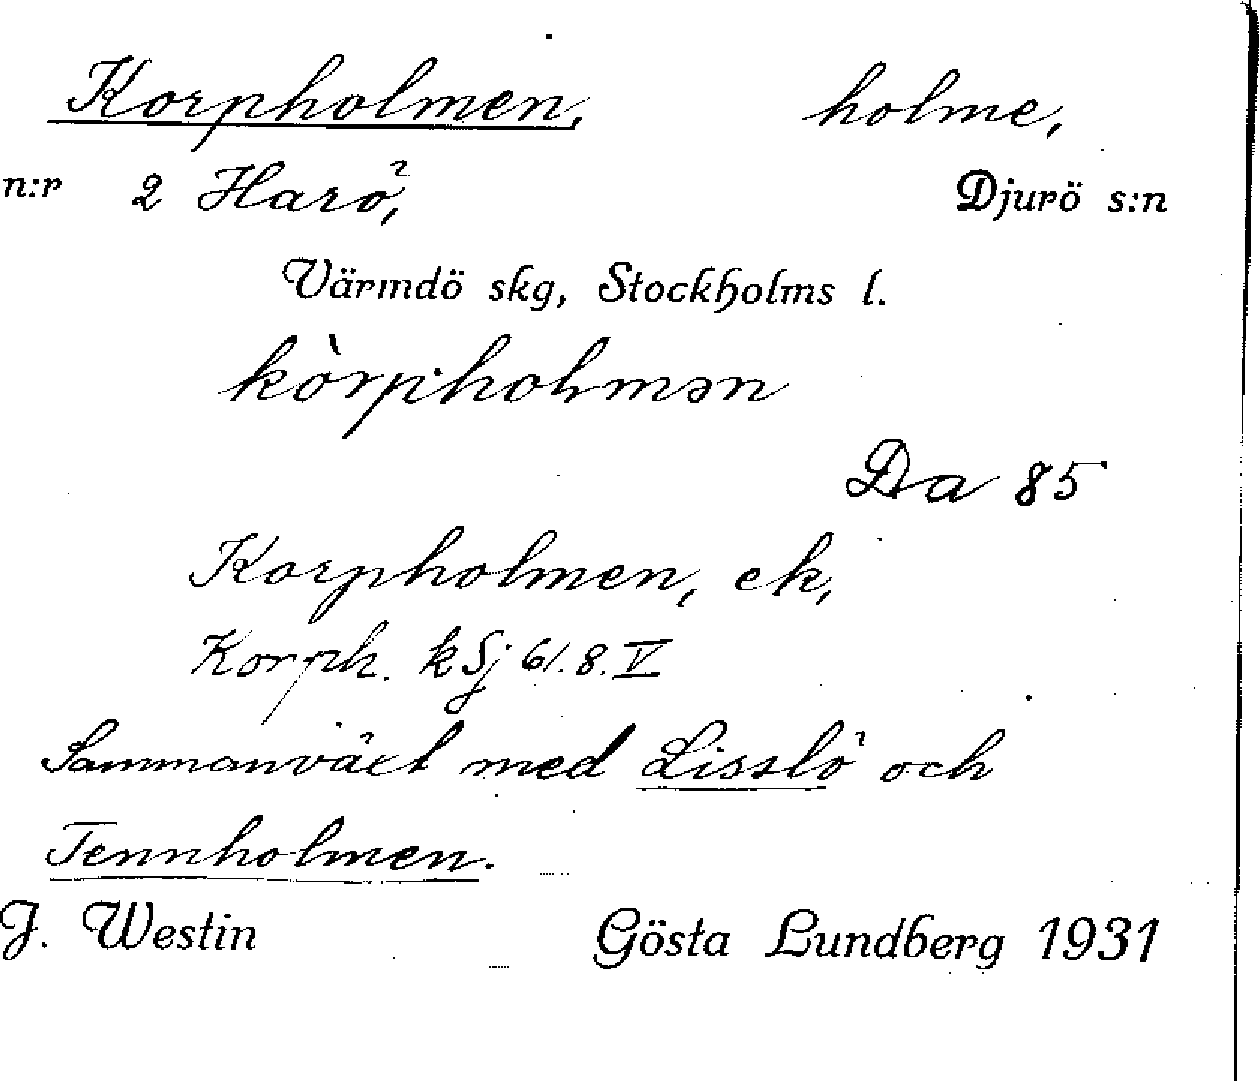 Korpholmen, holme,
n:r 2 Harö, Djurö s:n
Värmdö skg, Stockholms l.
kòrpholmən
Da 85
Korpholmen, ek,
Korph. k Sj 61. 8. V
Sammanväxt med Lisslö och
Tennholmen.
J. Westin Gösta Lundberg 1931